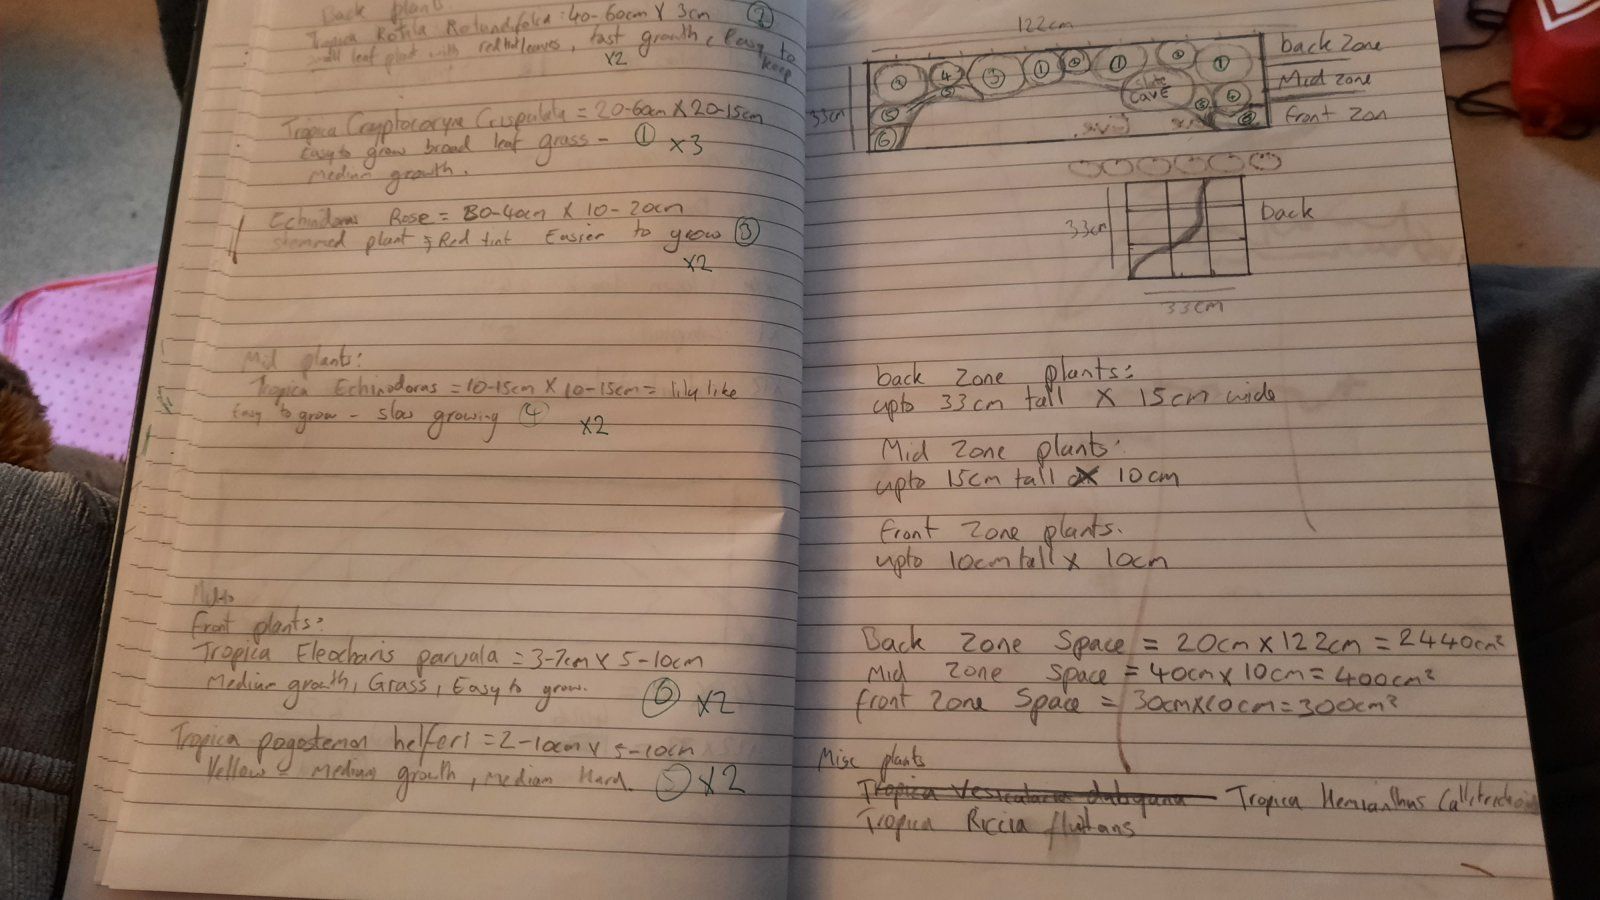 Back plants
Tropica Rotila Rotundfolia: 40-60cm X 3cm ②
small leaf plant with red leaves, fast growth, Easy to keep
x2
Tropica Cryptocoryne Crispulata = 20-60cm X 20-15cm
Easy to grow broad leaf grass - ① x3
Medium growth.
Echinodoras Rose = 30-40cm X 10-20cm
stemmed plant & Red tint Easier to grow ③
x2
Mid plants:
Tropica Echinodoras = 10-15cm X 10-15cm = lily like
Easy to grow - slow growing ④ x2
Front plants:
Tropica Eleocharis parvala = 3-7cm X 5-10cm
Medium growth, Grass, Easy to grow. ⑥ x2
Tropica pogostemon helferi = 2-10cm X 5-10cm
Yellow - medium growth, medium Hard. ⑤ x2
122cm
back Zone
Mid zone
front Zon
② ④ ③ ① ② ① ② ①
Cave
⑤
⑥
33cm
33cm
back
33cm
back zone plants:
upto 33cm tall X 15cm wide
Mid Zone plants:
upto 15cm tall X 10cm
front Zone plants.
upto 10cm tall X 10cm
Back Zone Space = 20cm X 122cm = 2440cm²
Mid Zone Space = 40cm X 10cm = 400cm²
front Zone Space = 30cm X 10cm = 300cm²
Misc plants
Tropica Vesicularia dubyana - Tropica Hemianthus Callitrichoi
Tropica Riccia fluitans